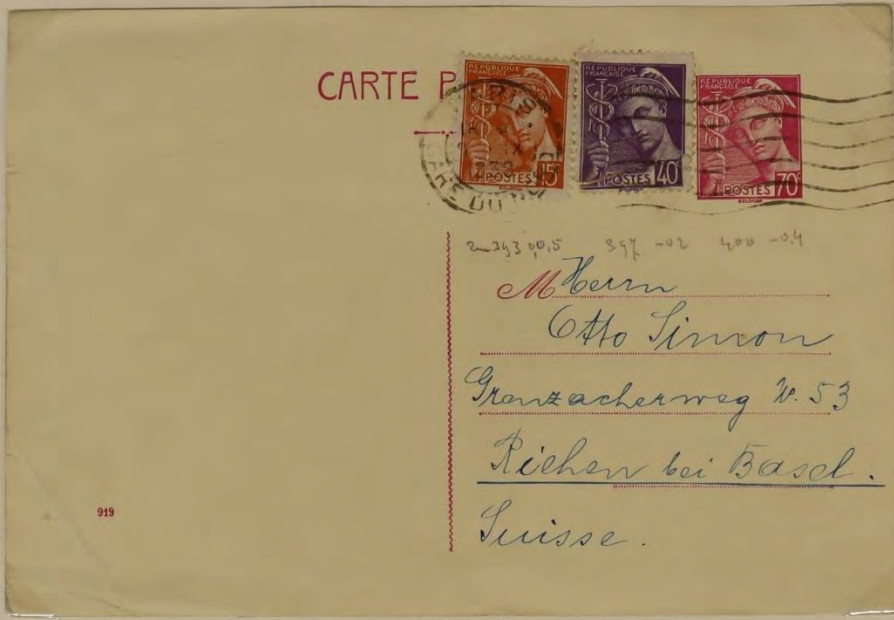 CARTE P
RÉPUBLIQUE FRANÇAISE
POSTES 15c
RÉPUBLIQUE FRANÇAISE
POSTES 40c
RÉPUBLIQUE FRANÇAISE
POSTES 70c
PARIS
GARE DU NORD
397 -02 400 -0,4
M Herrn
Otto Simon
Grenzacherweg N. 53
Riehen bei Basel.
Suisse.
919